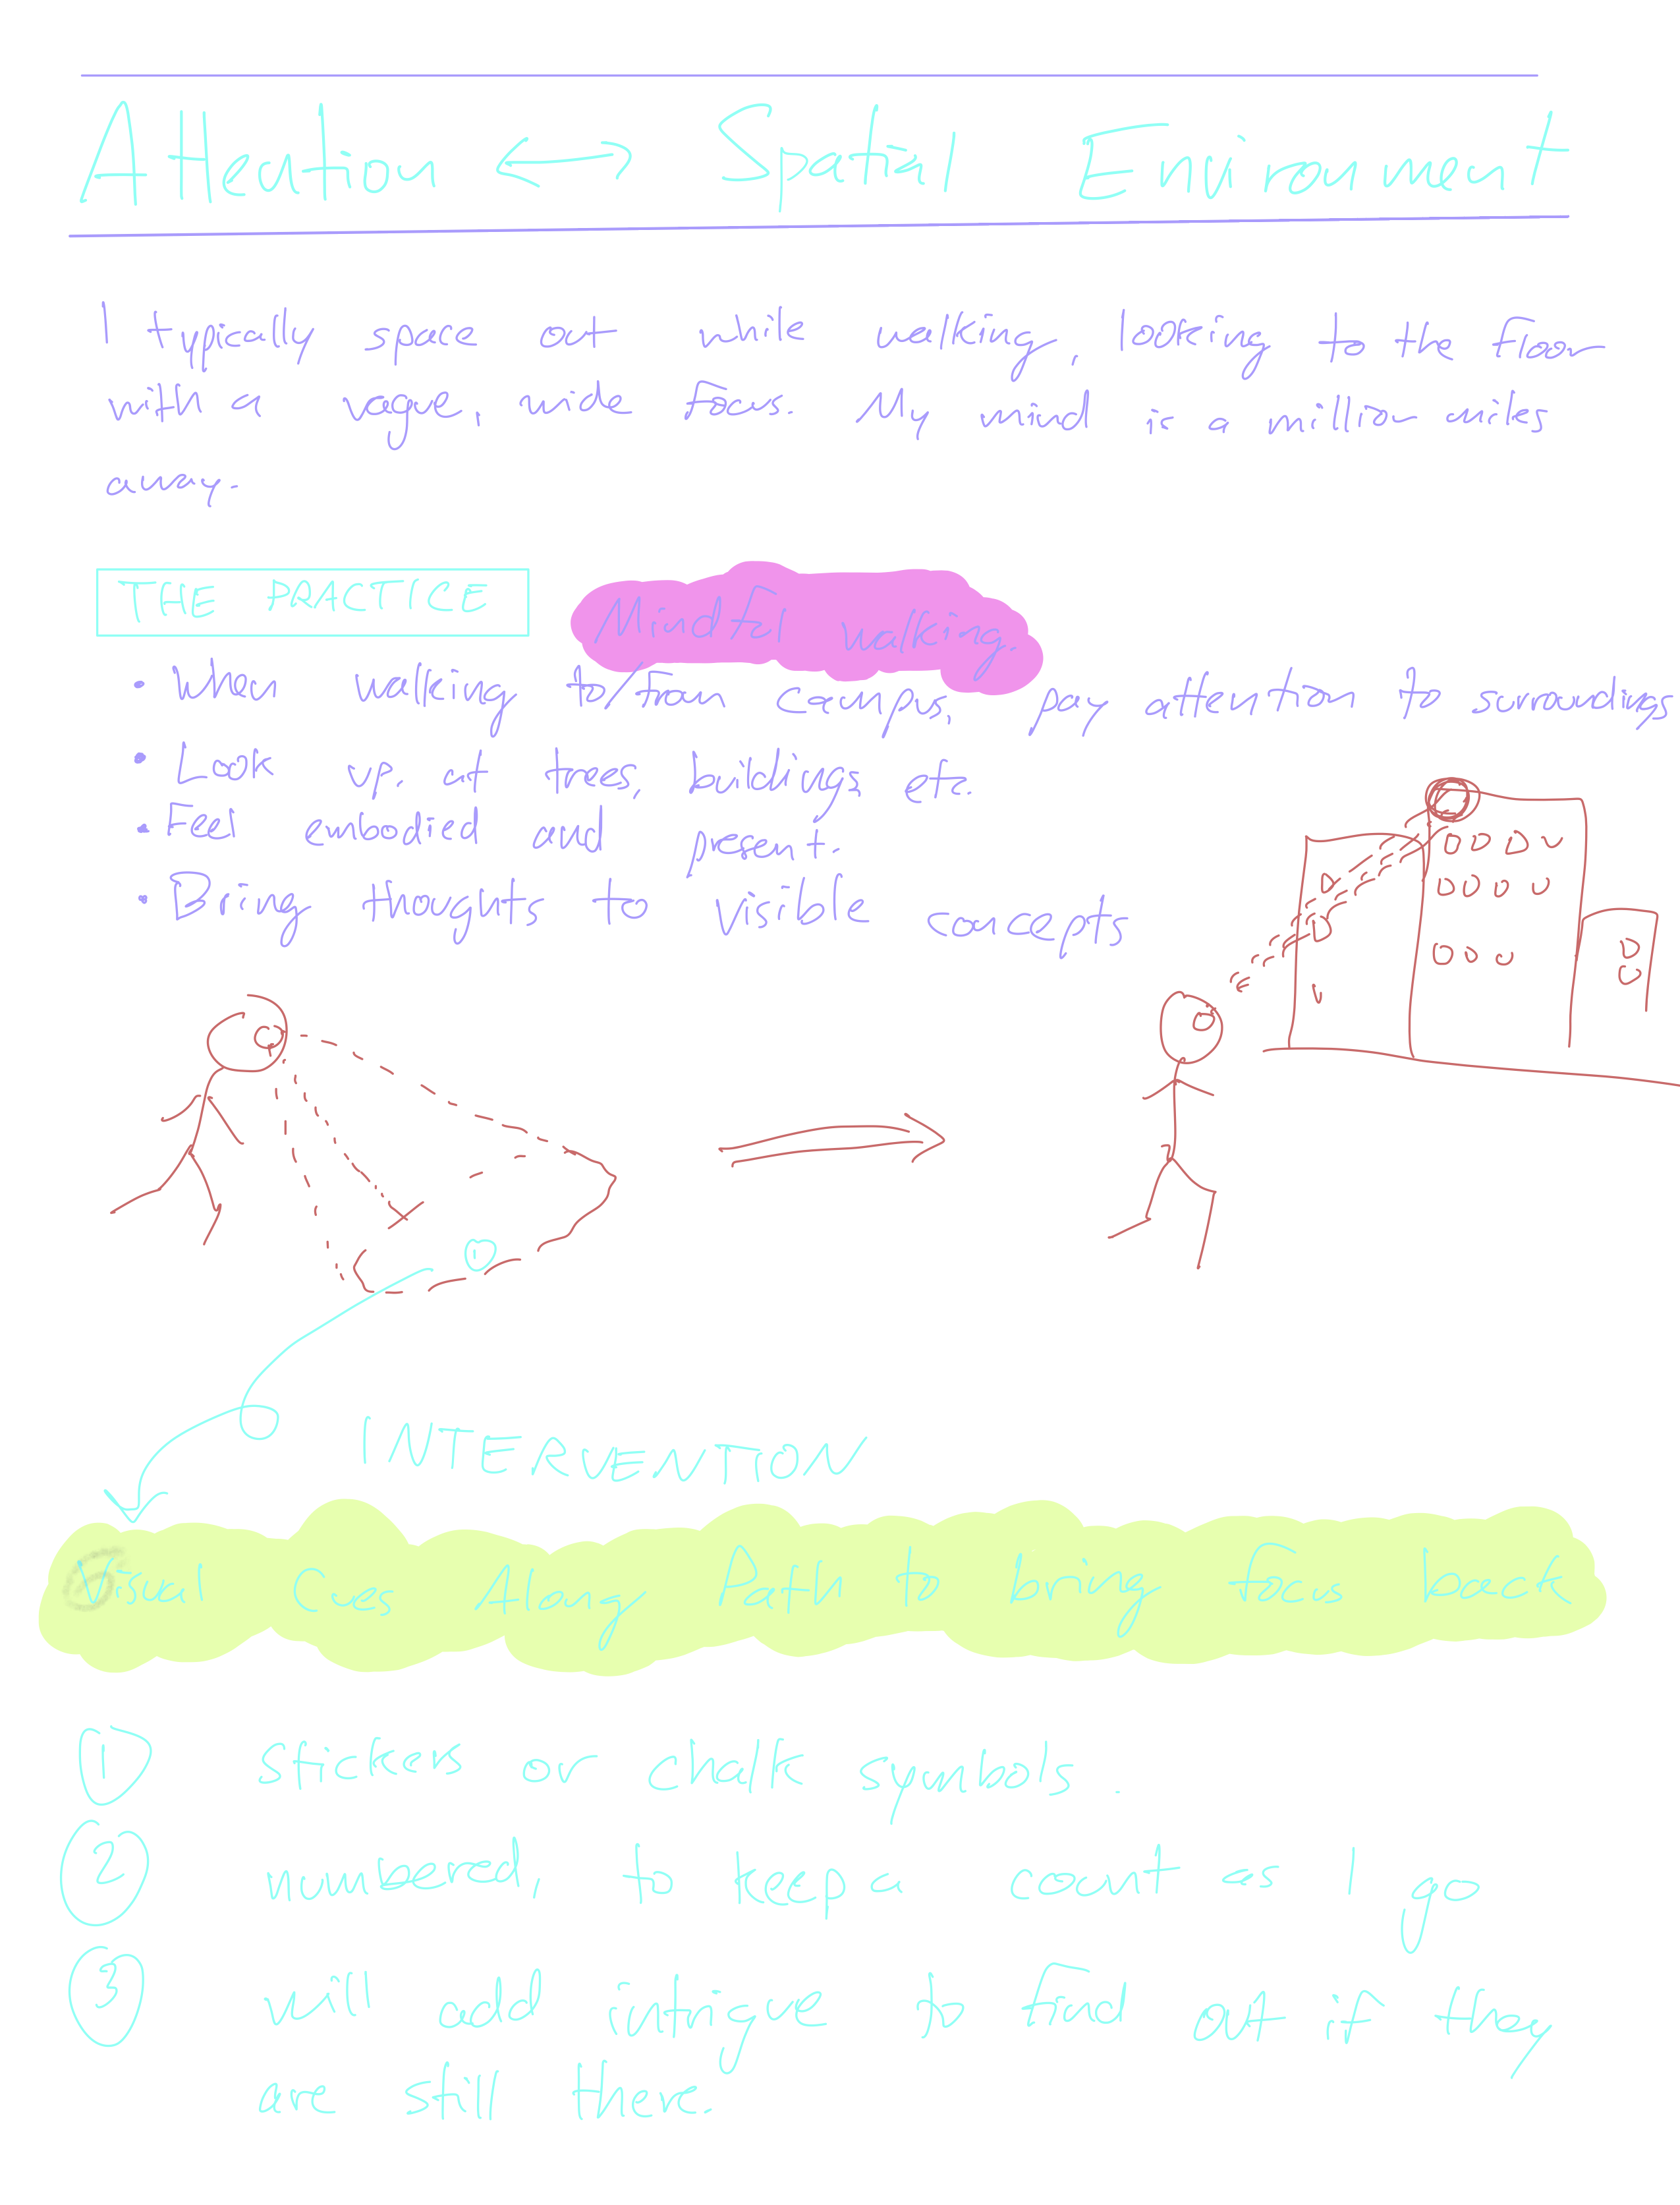 Attention ⟷ Spatial Environment
I typically space out while walking, looking to the floor
with a vague, wide focus. My mind is a million miles
away.
THE PRACTICE Mindful walking.
• When walking to/from campus, pay attention to surroundings
• Look up, at trees, buildings, etc.
• Feel embodied and present.
• Bring thoughts to visible concepts
INTERVENTION
Visual Cues Along Path to bring focus back
① stickers or chalk symbols.
② numbered, to keep a count as I go
③ will add intrigue to find out if they
are still there.